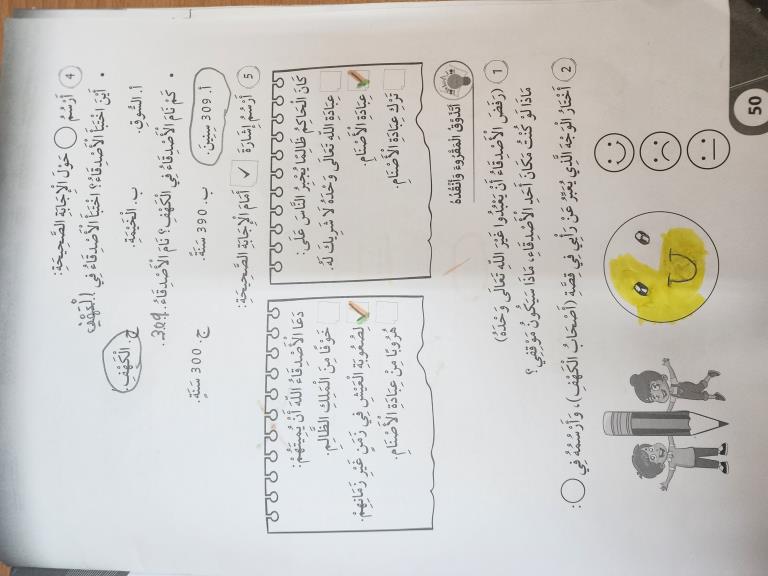 4 أَرْسُمُ حَوْلَ الْإِجَابَةِ الصَّحِيحَةِ:
• أَيْنَ اخْتَبَأَ الْأَصْدِقَاءُ؟ اخْتَبَأَ الْأَصْدِقَاءُ فِي الْكَهْفِ
أ. السُّوقِ. ب. الْخَيْمَةِ. ج. الْكَهْفِ.
• كَمْ نَامَ الْأَصْدِقَاءُ فِي الْكَهْفِ؟ نَامَ الْأَصْدِقَاءُ 309.
أ. 309 سِنِينَ. ب. 390 سَنَةً. ج. 300 سَنَةٍ.
5 أَرْسُمُ إِشَارَةَ ✓ أَمَامَ الْإِجَابَةِ الصَّحِيحَةِ:
كَانَ الْحَاكِمُ ظَالِمًا يُجْبِرُ النَّاسَ عَلَى:
عِبَادَةِ اللَّهِ تَعَالَى وَحْدَهُ لَا شَرِيكَ لَهُ.
عِبَادَةِ الْأَصْنَامِ.
تَرْكِ عِبَادَةِ الْأَصْنَامِ.
دَعَا الْأَصْدِقَاءُ اللَّهَ أَنْ يُمِيتَهُمْ:
خَوْفًا مِنَ الْمَلِكِ الظَّالِمِ.
لِصُعُوبَةِ الْعَيْشِ فِي زَمَنٍ غَيْرِ زَمَانِهِمْ.
هُرُوبًا مِنْ عِبَادَةِ الْأَصْنَامِ.
أَتَذَوَّقُ الْمَقْرُوءَ وَأَنْقُدُهُ
1 (رَفَضَ الْأَصْدِقَاءُ أَنْ يَعْبُدُوا غَيْرَ اللَّهِ تَعَالَى وَحْدَهُ)
مَاذَا لَوْ كُنْتُ مَكَانَ أَحَدِ الْأَصْدِقَاءِ، مَاذَا سَيَكُونُ مَوْقِفِي؟
2 أَخْتَارُ الْوَجْهَ الَّذِي يُعَبِّرُ عَنْ رَأْيِي فِي قِصَّةِ (أَصْحَابُ الْكَهْفِ)، وَأَرْسُمُهُ فِي :
50